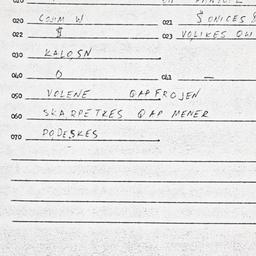 020 COUM W 021 S ONICES S
022 $ 023 VOLIKES OLI
030 KALOSN
040 O 041 —
050 VOLENE GAP FROJEN
060 SKARPETKES GAP MENER
070 PODESKES